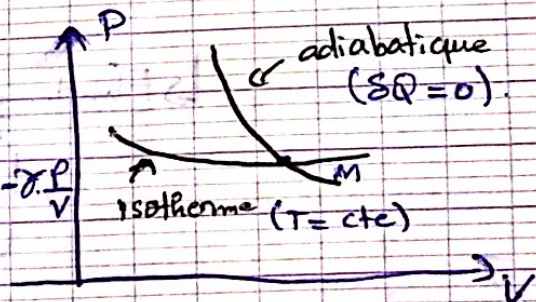 P
adiabatique
(δQ = 0).
-γ. P/V
M
isotherme (T = cte)
V